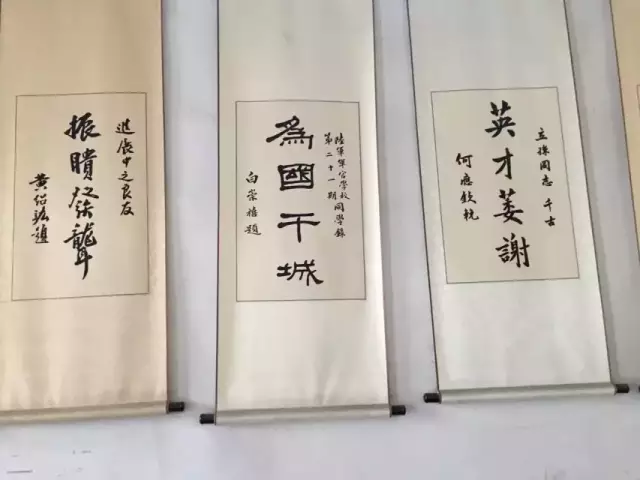 立操同志 千古
英才萎謝
何應欽輓
陸軍軍官學校
第二十一期同學錄
為國干城
白崇禧題
進展中之良友
振聵發聾
黃紹竑題